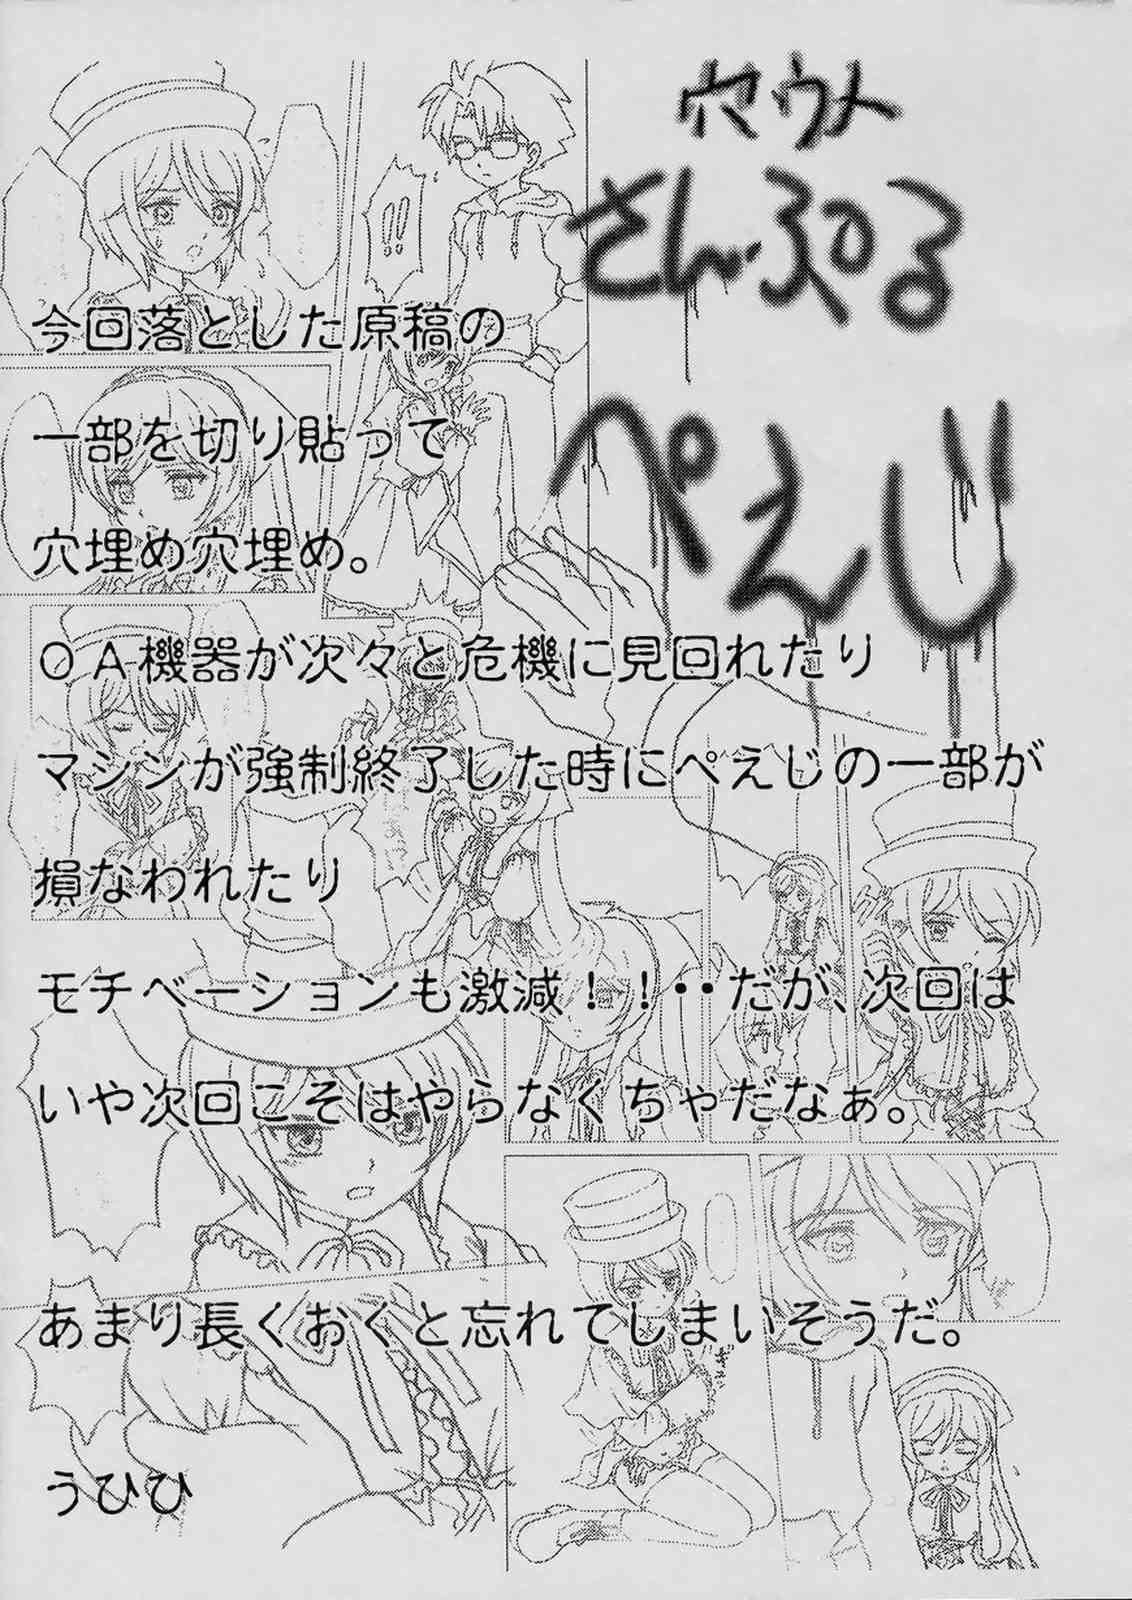 穴ウメ
さんぷる
ぺえじ
!!
今回落とした原稿の
一部を切り貼って
穴埋め穴埋め。
ＯＡ機器が次々と危機に見回れたり
マシンが強制終了した時にぺえじの一部が
損なわれたり
モチベーションも激減！！‥だが、次回は
いや次回こそはやらなくちゃだなぁ。
あまり長くおくと忘れてしまいそうだ。
うひひ